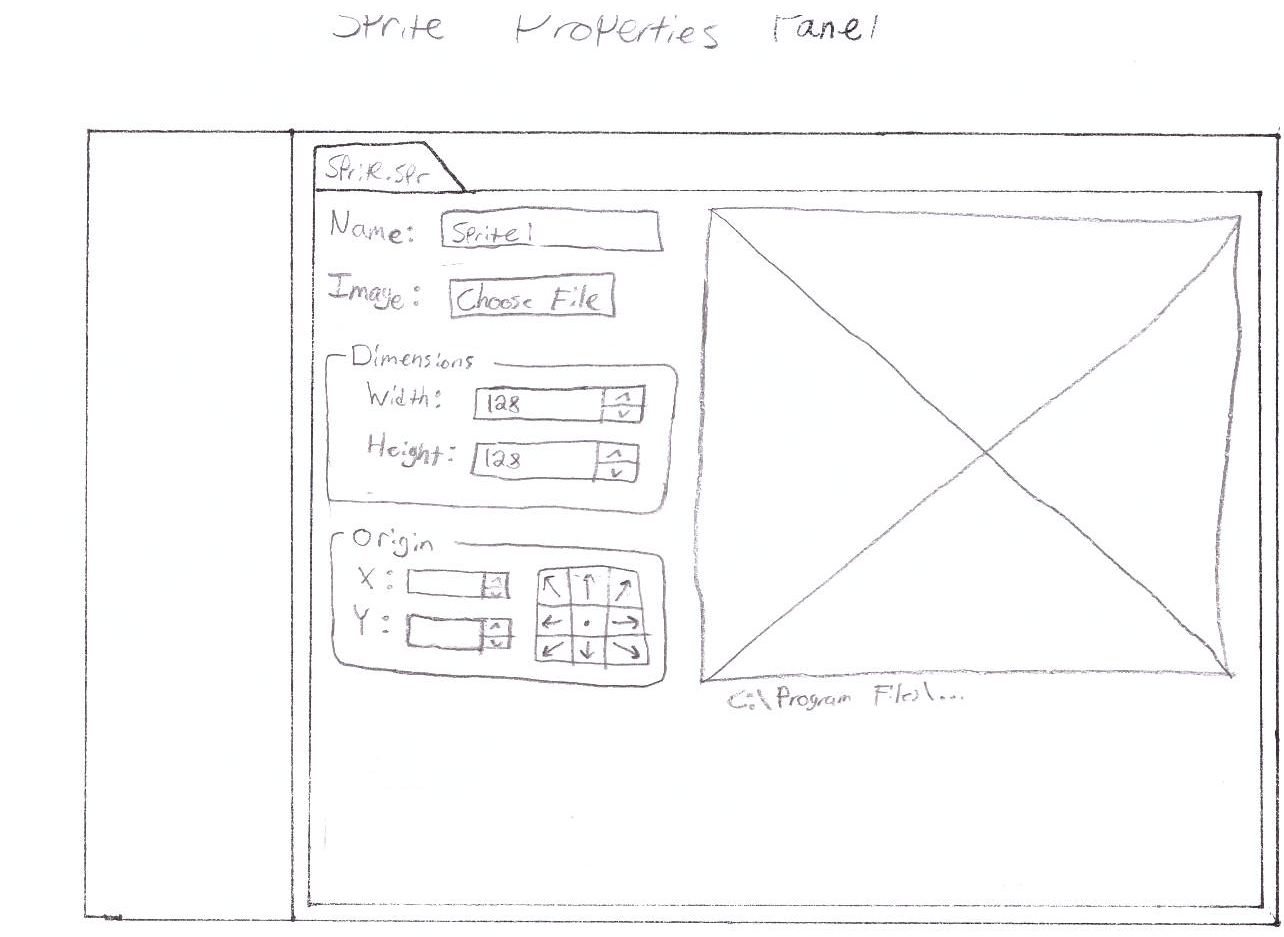 Sprite Properties Panel
Sprite.spr
Name: Sprite1
Image: Choose File
Dimensions
Width: 128
Height: 128
Origin
X:
Y:
C:\Program Files\...